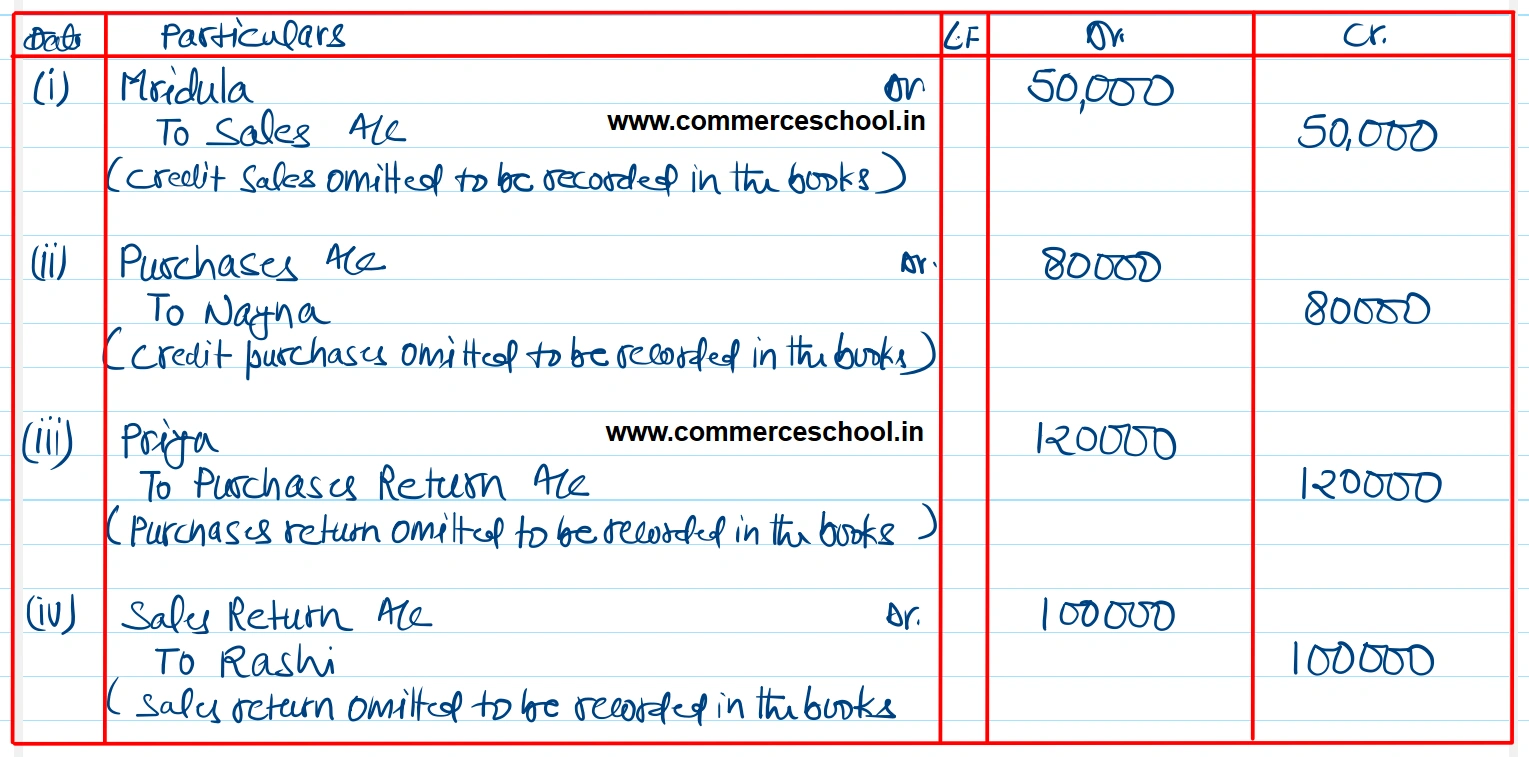 Date Particulars L.F Dr. Cr.
(i) Mridula Dr 50,000
To Sales A/c www.commerceschool.in 50,000
(credit sales omitted to be recorded in the books)
(ii) Purchases A/c Dr. 80000
To Nayna 80000
(credit purchases omitted to be recorded in the books)
(iii) Priya www.commerceschool.in 120000
To Purchases Return A/c 120000
(Purchases return omitted to be recorded in the books)
(iv) Sales Return A/c Dr. 100000
To Rashi 100000
(Sales return omitted to be recorded in the books